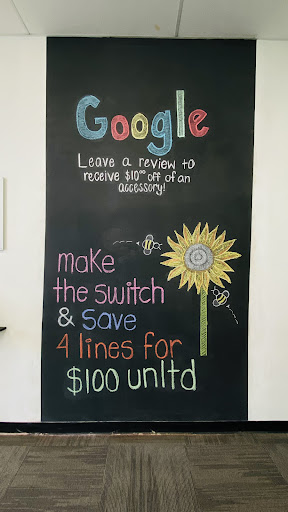 Google
Leave a review to
receive $10⁰⁰ off of an
accessory!
make
the switch
& save
4 lines for
$100 unltd